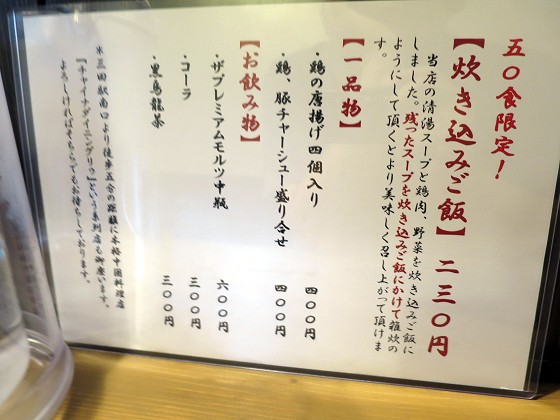 五〇食限定！
【炊き込みご飯】 二三〇円
当店の清湯スープと鶏肉、野菜を炊き込みご飯に
しました。残ったスープを炊き込みご飯にかけて雑炊の
ようにして頂くとより美味しく召し上がって頂けま
す。
【一品物】
・鶏の唐揚げ四個入り 四〇〇円
・鶏、豚チャーシュー盛り合せ 四〇〇円
【お飲み物】
・ザプレミアムモルツ中瓶 六〇〇円
・コーラ 三〇〇円
・黒烏龍茶 三〇〇円
※三田駅南口より徒歩五分の距離に本格中国料理店
『チャイナダイニングリゥ』という系列店も御座います。
よろしければそちらでもお待ちしております。